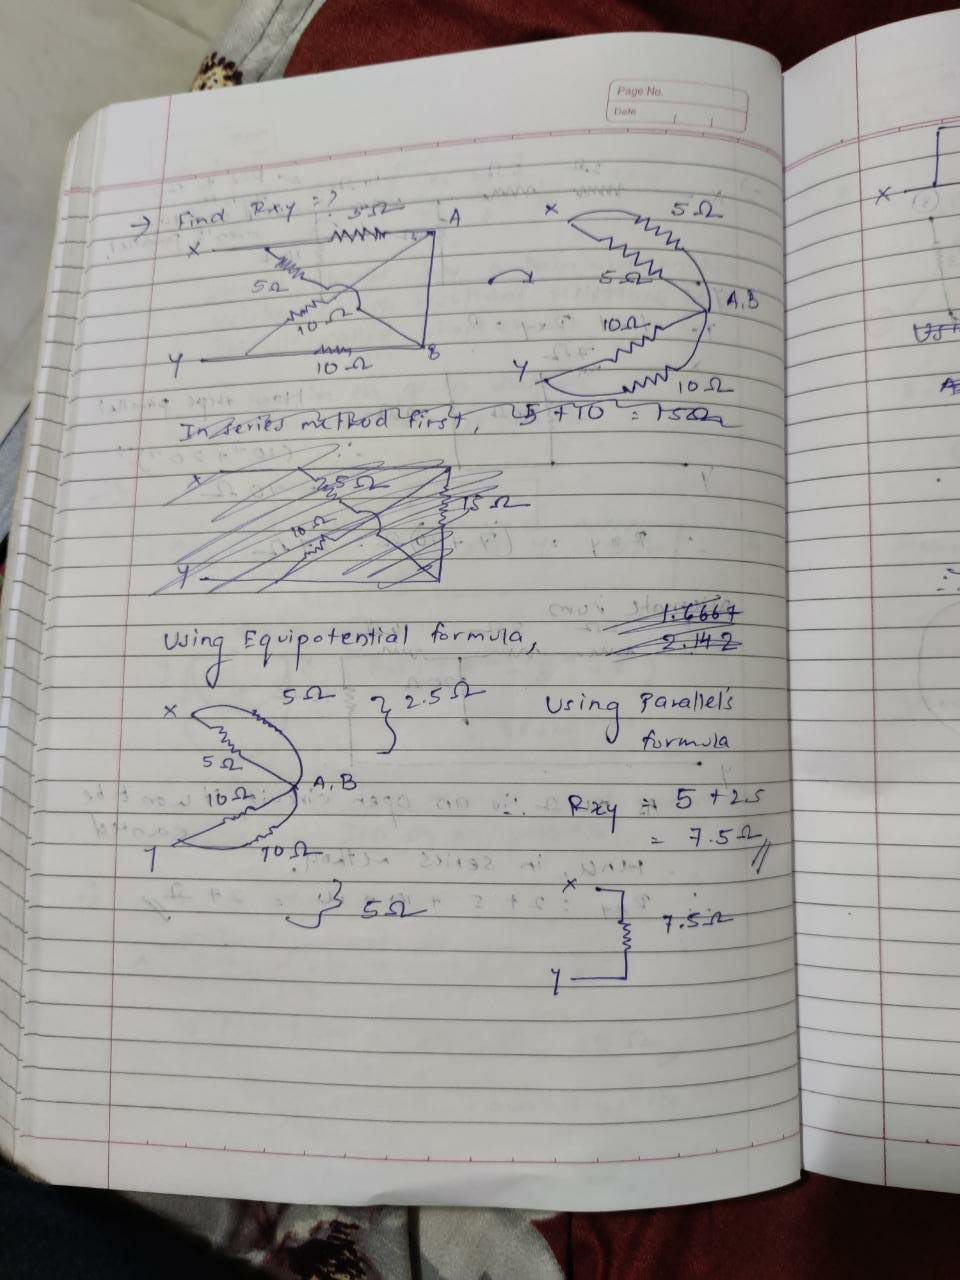 Page No.
Date
→ Find Rxy =>
X 5Ω A
5Ω
10Ω
Y 10Ω B
X 5Ω
5Ω
A,B
10Ω
Y
10Ω
In series method first, 5 + 10 = 15Ω
X 5Ω
15Ω
10Ω
Y
1.6667
2.142
Using Equipotential formula,
5Ω } 2.5Ω
X
5Ω
10Ω A,B
Y 10Ω
} 5Ω
Using Parallel's
formula
∴ Rxy = 5 + 2.5
= 7.5Ω //
X
7.5Ω
Y
X